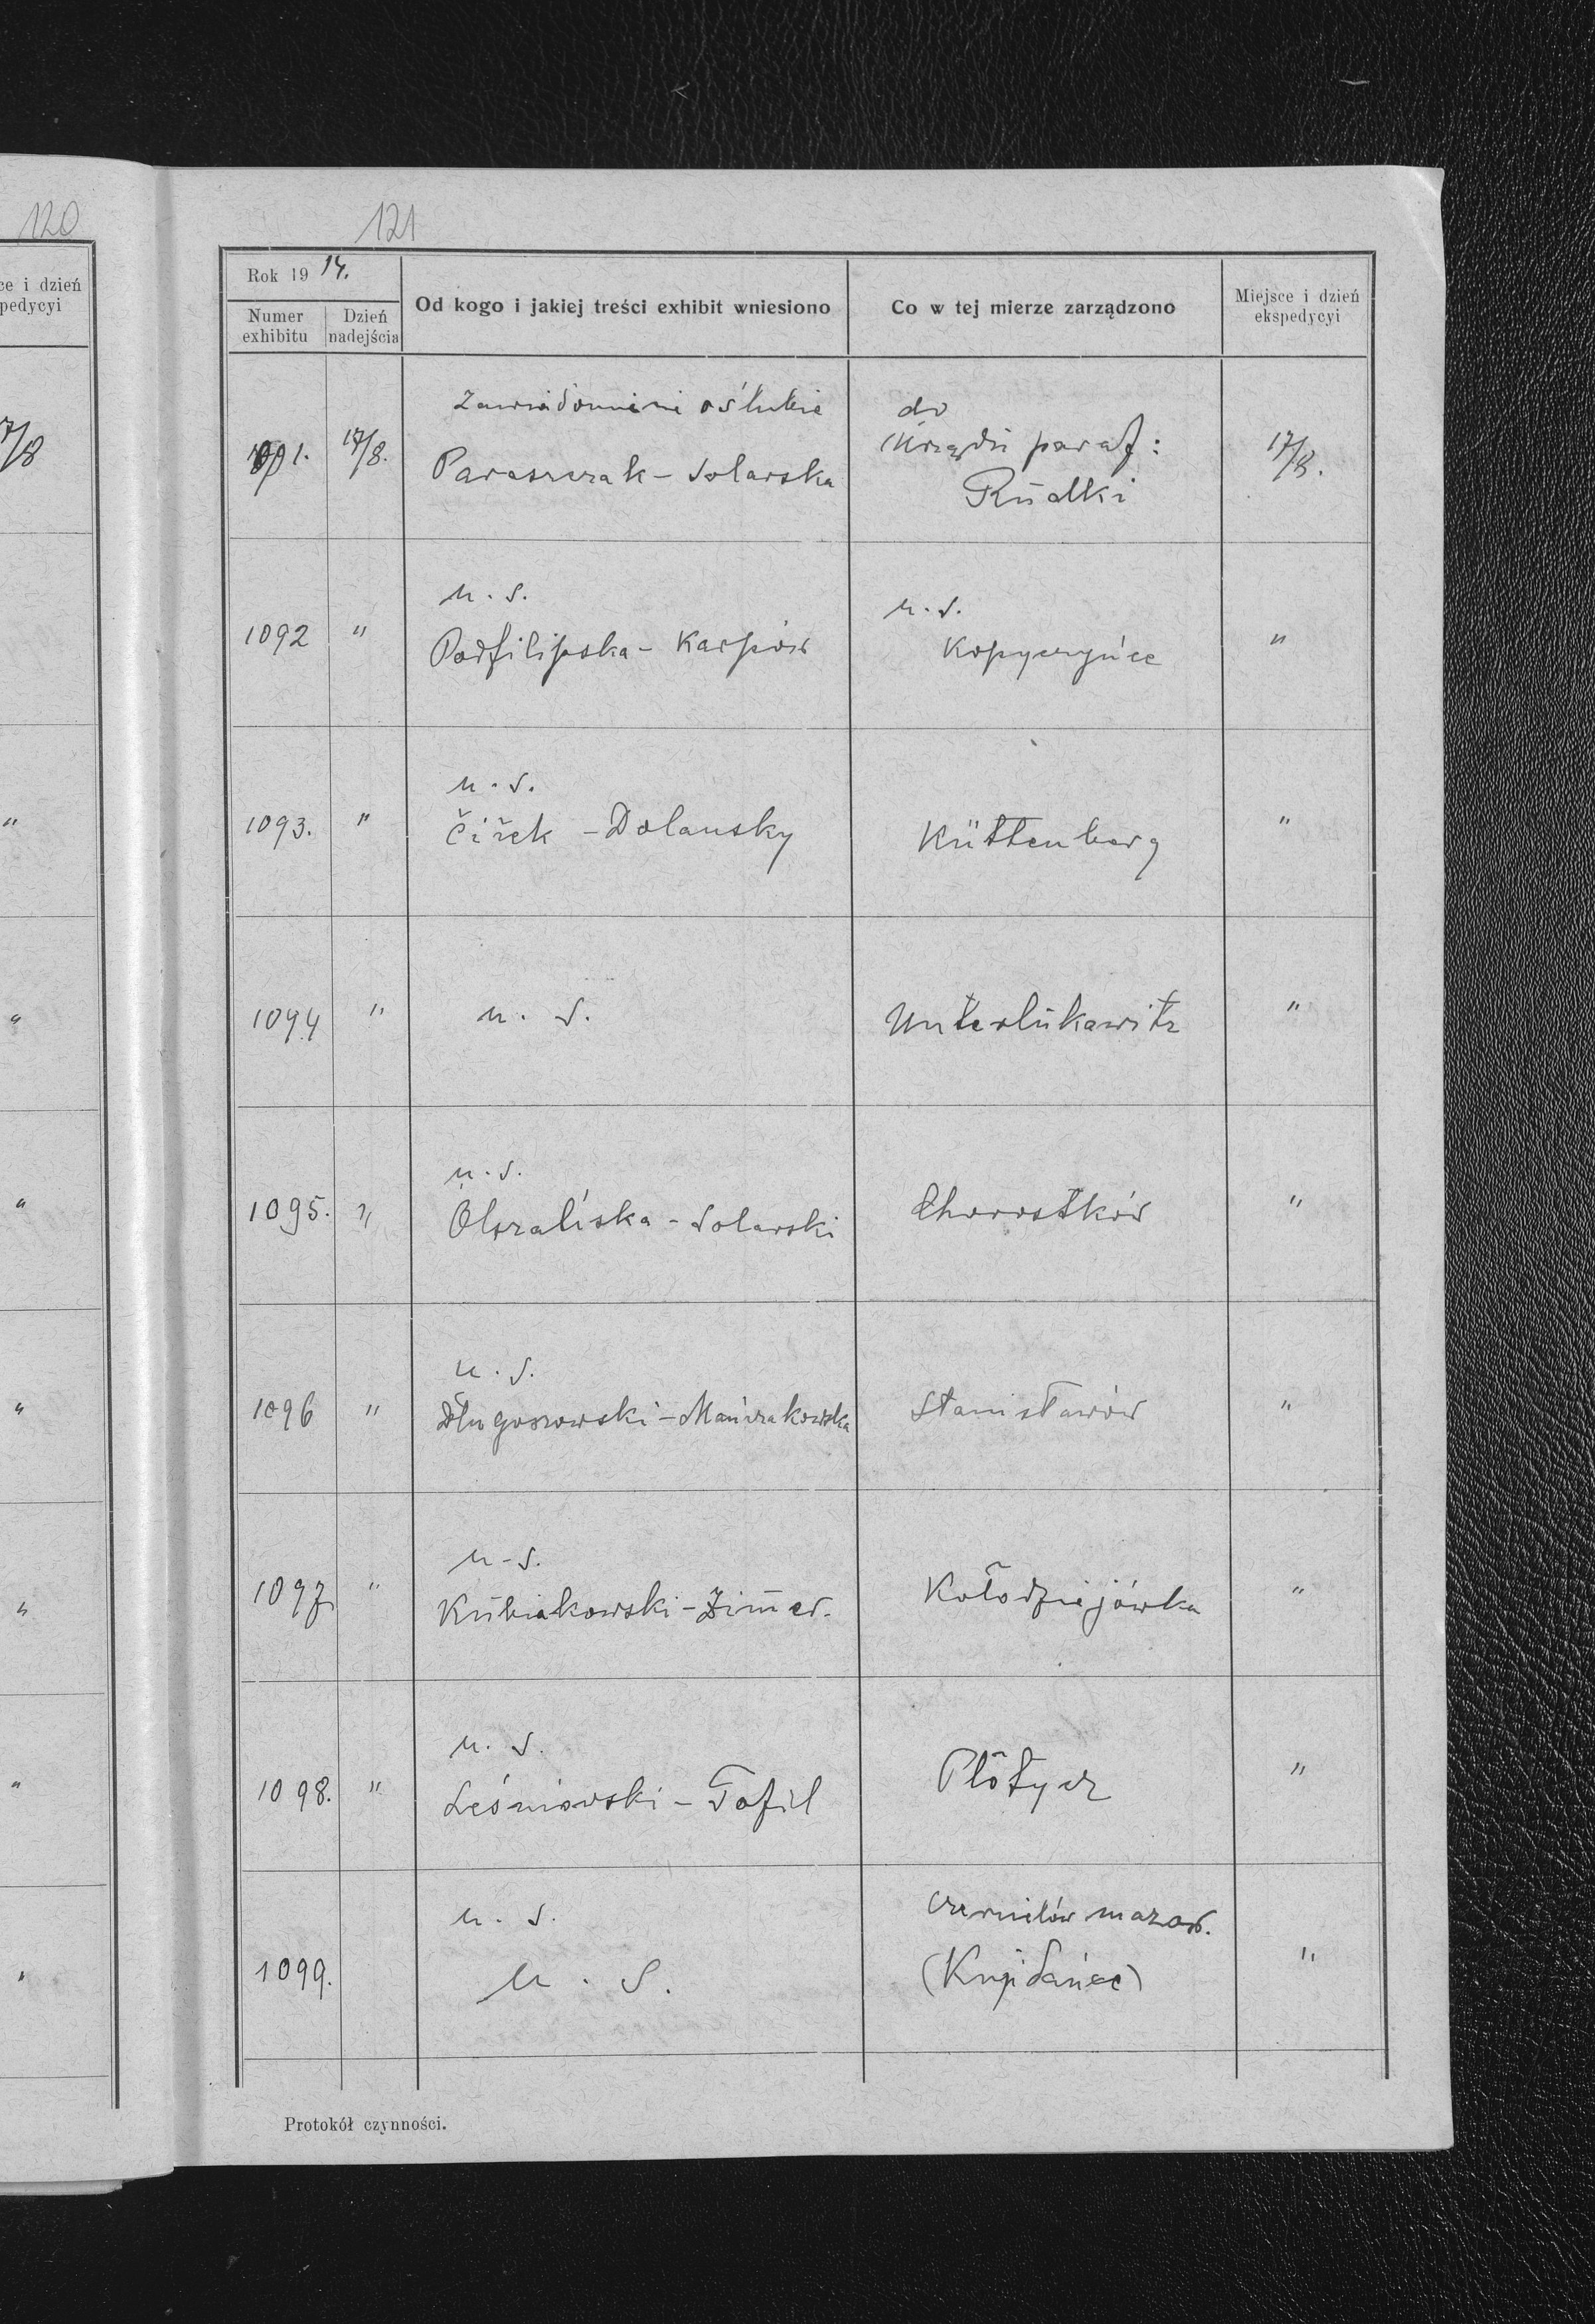 120
ce i dzień
pedycyi
17/8
"
"
"
"
"
"
"
121
Rok 19 14.
Numer exhibitu
Dzień nadejścia
Od kogo i jakiej treści exhibit wniesiono
Co w tej mierze zarządzono
Miejsce i dzień ekspedycyi
1091. 17/8.
Zawiadomieni o ślubie
Paraszczak - Solarska
do
Urzędu paraf:
Rudki
17/8.
1092 "
u. s.
Podfilipska - Karpów
u. s.
Kopyczyńce
"
1093. "
u. s.
Čížek - Dolansky
Küttenberg
"
1094 "
u. s.
Unterlukawitz
"
1095. "
u. s.
- Solarski
Chorostków
"
1096 "
u. s.
Długoszowski -
Stanisławów
"
1097 "
u - s.
Kubiakowski - Zimer.
Kołodziejówka
"
1098. "
u. s.
Leśniowski - Tofil
Płotycz
"
1099.
u. s.
u. s.
Czernilów mazow.
(Kujdańce)
"
Protokół czynności.